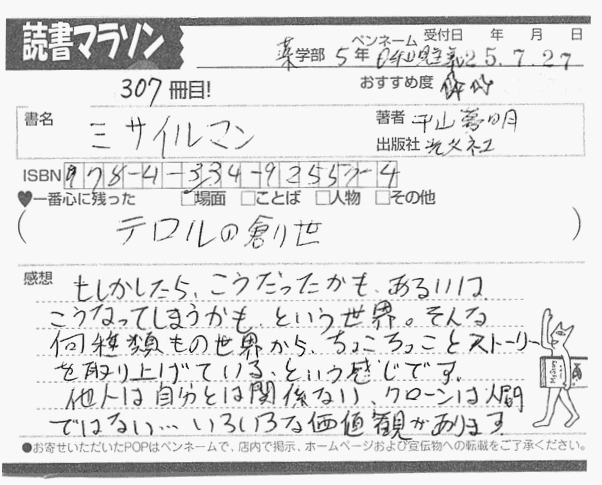 読書マラソン
受付日 年 月 日
薬学部 5年 ペンネーム 25.7.27
307冊目!
おすすめ度
書名 ミサイルマン
著者 平山夢明
出版社 光文社
ISBN 978-4-334-92557-4
♥一番心に残った □場面 □ことば □人物 □その他
(テロルの創世)
感想
もしかしたら、こうだったかも、あるいは
こうなってしまうかも、という世界。そんな
何種類もの世界から、ちょこちょことストーリー
を取り上げている、という感じです。
他人は自分とは関係ない、クローンは人間
ではない…いろいろな価値観があります
●お寄せいただいたPOPはペンネームで、店内で掲示、ホームページおよび宣伝物への転載をご了承ください。